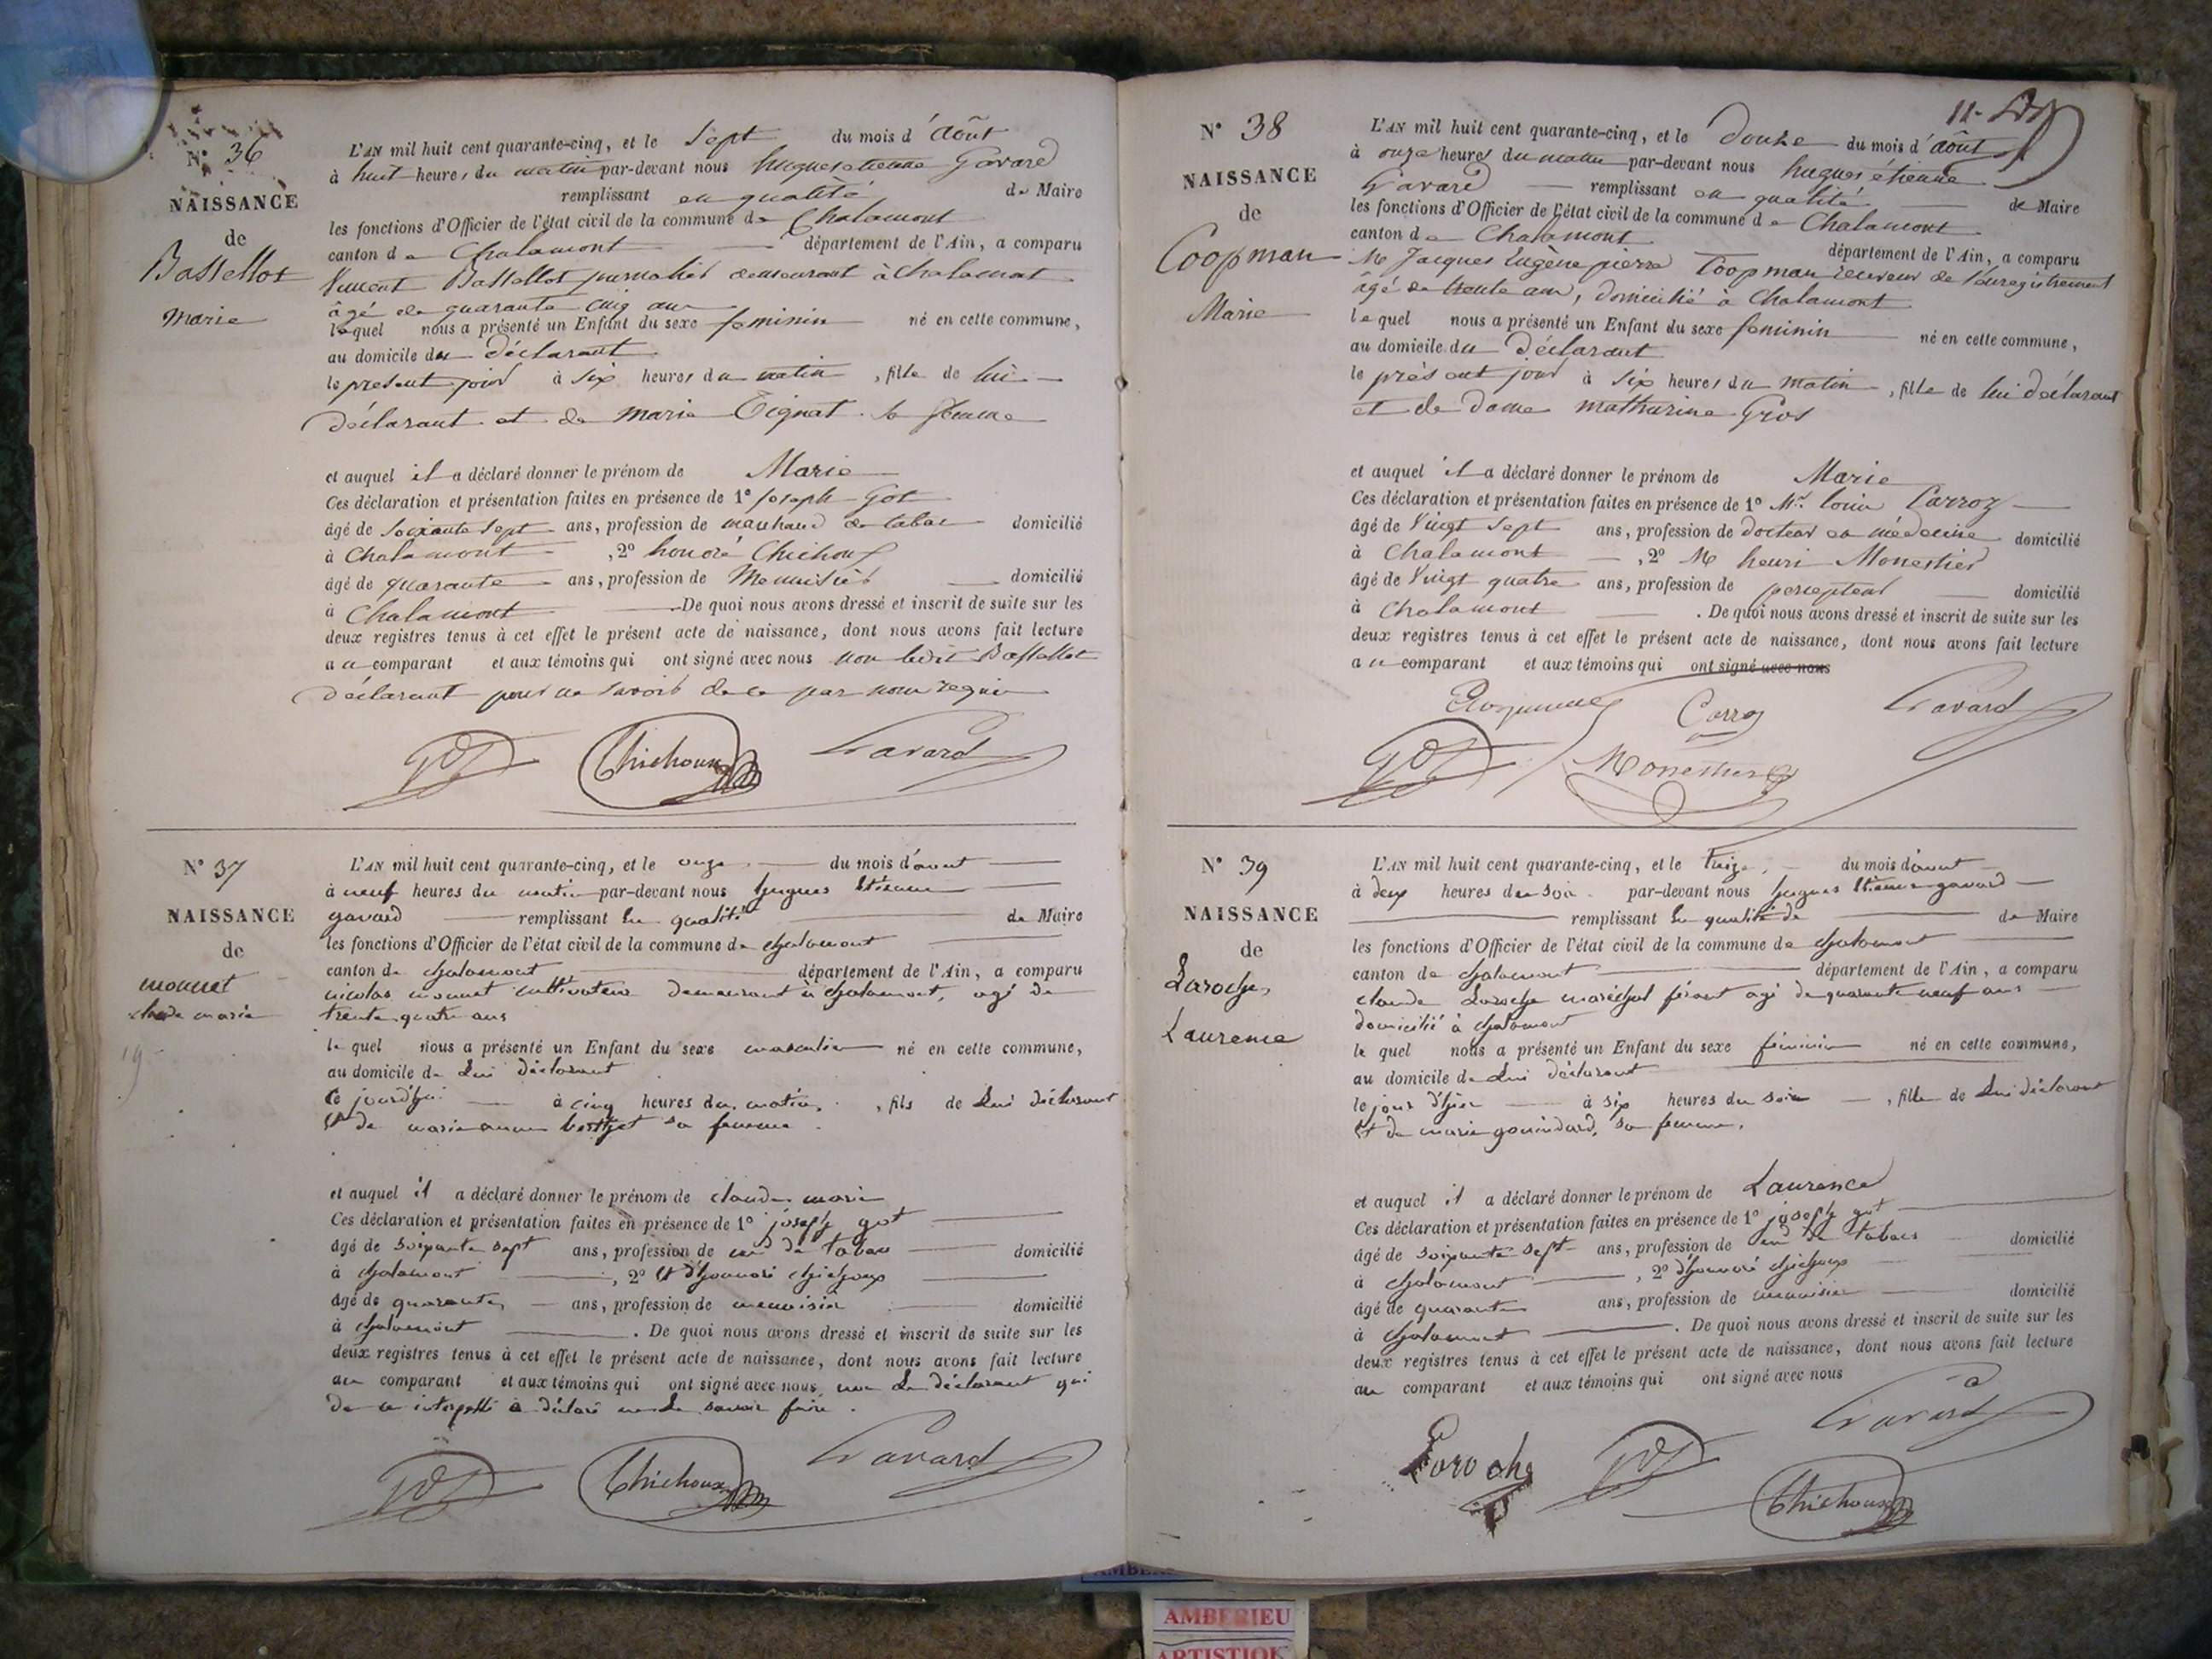 N° 36
NAISSANCE
de
Bassellot
Marie
L'AN mil huit cent quarante-cinq, et le Sept du mois d'Août
à huit heures du matin par-devant nous hugues etienne Gavard
remplissant en qualité de Maire
les fonctions d'Officier de l'état civil de la commune de Chalamont
canton de Chalamont département de l'Ain, a comparu
Vincent Bassellot journalier demeurant à Chalamont
âgé de quarante cinq ans
lequel nous a présenté un Enfant du sexe feminin né en cette commune,
au domicile du déclarant
le présent jour à six heures du matin, fille de lui
déclarant et de marie Tignat sa femme
et auquel il a déclaré donner le prénom de Marie
Ces déclaration et présentation faites en présence de 1° joseph Got
âgé de soixante sept ans, profession de marchand de tabac domicilié
à Chalamont, 2° honoré Chichoux
âgé de quarante ans, profession de Menuisier domicilié
à Chalamont. De quoi nous avons dressé et inscrit de suite sur les
deux registres tenus à cet effet le présent acte de naissance, dont nous avons fait lecture
au comparant et aux témoins qui ont signé avec nous non ledit Bassellot
déclarant pour ne savoir de ce par nous requis
Got Chichoux Gavard
N° 37
NAISSANCE
de
monnet
claude marie
L'AN mil huit cent quarante-cinq, et le onze du mois d'aout
à neuf heures du matin par-devant nous hugues Etienne
gavard remplissant En qualité de Maire
les fonctions d'Officier de l'état civil de la commune de chalamont
canton de chalamont département de l'Ain, a comparu
nicolas monnet cultivateur demeurant à chalamont, agé de
trente quatre ans
le quel nous a présenté un Enfant du sexe masculin né en cette commune,
au domicile de Lui déclarant
Ce jourd'hui à cinq heures du matin, fils de Lui déclarant
Et de marie anne berthet sa femme.
et auquel il a déclaré donner le prénom de claude marie
Ces déclaration et présentation faites en présence de 1° joseph got
âgé de soixante sept ans, profession de md de tabac domicilié
à chalamont, 2° Et d'honnoré chichoux
âgé de quarante ans, profession de menuisier domicilié
à chalamont. De quoi nous avons dressé et inscrit de suite sur les
deux registres tenus à cet effet le présent acte de naissance, dont nous avons fait lecture
au comparant et aux témoins qui ont signé avec nous, non Le déclarant qui
de ce interpellé a déclaré ne Le savoir faire.
Got Chichoux Gavard
11-
N° 38
NAISSANCE
de
Coopman
Marie
L'AN mil huit cent quarante-cinq, et le douze du mois d'août
à onze heures du matin par-devant nous hugues étienne
Gavard remplissant en qualité de Maire
les fonctions d'Officier de l'état civil de la commune de Chalamont
canton de Chalamont département de l'Ain, a comparu
Mr Jacques Eugène pierre Coopman receveur de l'enregistrement
âgé de trente ans, domicilié à Chalamont
lequel nous a présenté un Enfant du sexe feminin né en cette commune,
au domicile du déclarant
le présent jour à six heures du matin, fille de lui déclarant
et de dame mathurine Gros
et auquel il a déclaré donner le prénom de Marie
Ces déclaration et présentation faites en présence de 1° Mr. Louis Carroz
âgé de Vingt sept ans, profession de docteur en médecine domicilié
à Chalamont, 2° Mr henri Monestier
âgé de Vingt quatre ans, profession de percepteur domicilié
à Chalamont. De quoi nous avons dressé et inscrit de suite sur les
deux registres tenus à cet effet le présent acte de naissance, dont nous avons fait lecture
au comparant et aux témoins qui ont signé avec nous
Carroz Gavard
Got Monestier
N° 39
NAISSANCE
de
Laroche
Laurence
L'AN mil huit cent quarante-cinq, et le treize, du mois d'aout
à deux heures du soir par-devant nous hugues Etienne gavard
remplissant En qualité de de Maire
les fonctions d'Officier de l'état civil de la commune de chalamont
canton de chalamont département de l'Ain, a comparu
claude Laroche maréchal férant agé de quarante neuf ans
domicilié à chalamont
le quel nous a présenté un Enfant du sexe féminin né en cette commune,
au domicile de Lui déclarant
le jour d'hier à six heures du soir, fille de Lui déclarant
Et de marie gouindard, sa femme.
et auquel il a déclaré donner le prénom de Laurence
Ces déclaration et présentation faites en présence de 1° joseph got
âgé de soixante sept ans, profession de md de tabacs domicilié
à chalamont, 2° d'honnoré chichoux
âgé de quarante ans, profession de menuisier domicilié
à chalamont. De quoi nous avons dressé et inscrit de suite sur les
deux registres tenus à cet effet le présent acte de naissance, dont nous avons fait lecture
au comparant et aux témoins qui ont signé avec nous
Gavard
Laroche Got
Chichoux
AMBERIEU
ARTISTIQUE